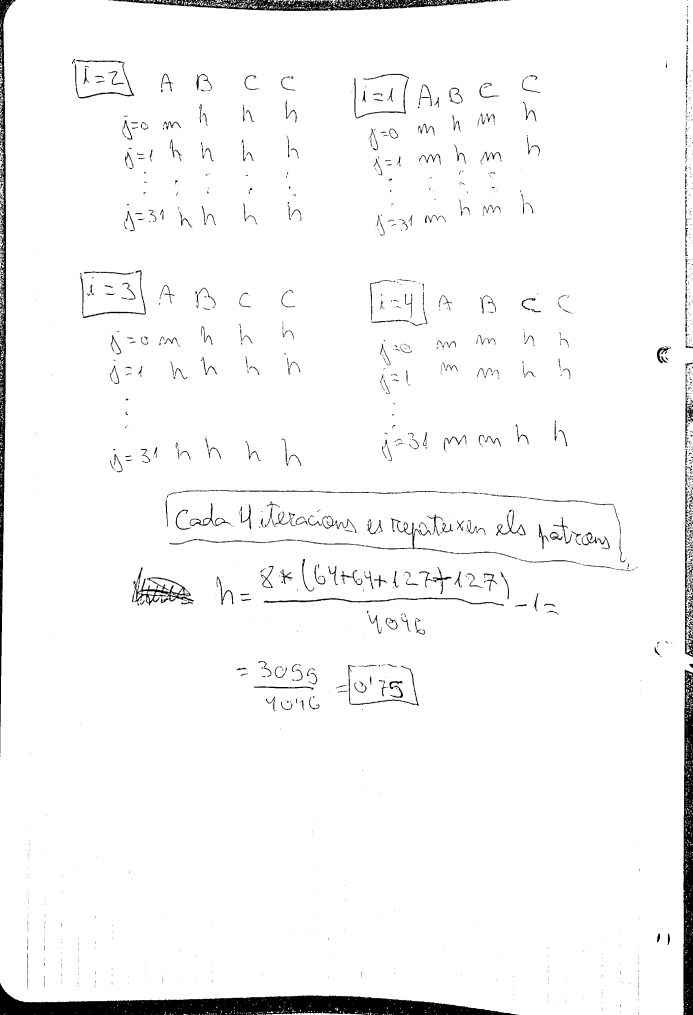 i=2 A B C C
j=0 m h h h
j=1 h h h h
: : : : :
j=31 h h h h
i=1 A, B C C
j=0 m h m h
j=1 m h m h
: : : :
j=31 m h m h
i=3 A B C C
j=0 m h h h
j=1 h h h h
:
j=31 h h h h
i=4 A B C C
j=0 m m h h
j=1 m m h h
:
j=31 m m h h
Cada 4 iteracions es repeteixen els patrons
h= 8*(64+64+127+127)
4096
-1=
= 3055
4096
= 0'75